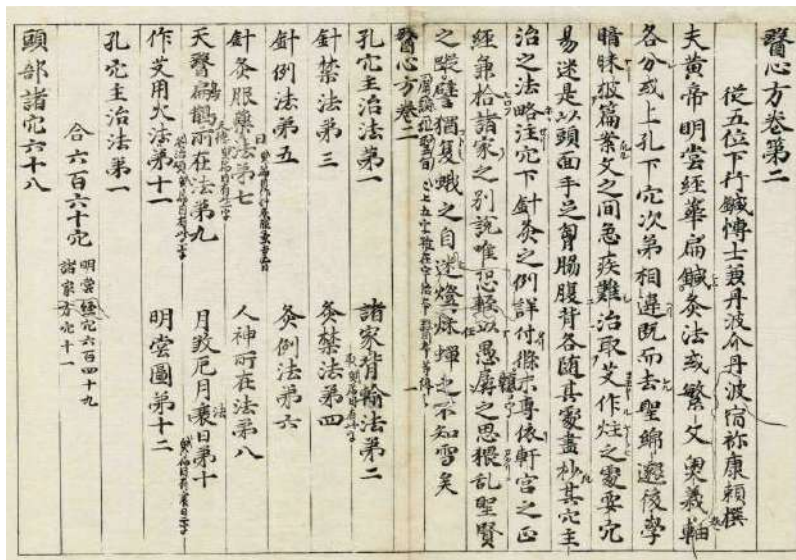 醫心方卷第二
從五位下行鍼博士兼丹波介丹波宿祢康頼撰
夫黄帝明堂經華扁鍼灸法或繁文奥義軸
各分或上孔下穴次第相違既而去聖綿邈後學
暗昧披篇案文之間急疾難治取艾作炷之處要穴
易迷是以頭面手足胷腸腹背各随其處盡抄其穴主
治之法略注穴下針灸之例詳付條末專依軒宮之正
經兼拾諸家之別說唯恐輙以愚孱之思猥乱聖賢
之蹤譬猶夏蛾之自迷燈烁蟬之不知雪矣
醫心方卷二
孔穴主治法第一
諸家背輸法第二
針禁法第三
灸禁法第四
針例法第五
灸例法第六
針灸服藥法第七
人神所在法第八
天醫扁鵲所在法第九
月殺厄月衰日第十
作艾用火法第十一
明堂圖第十二
孔穴主治法第一
合六百六十穴
明堂經穴六百四十九
諸家方穴十一
頭部諸穴六十八